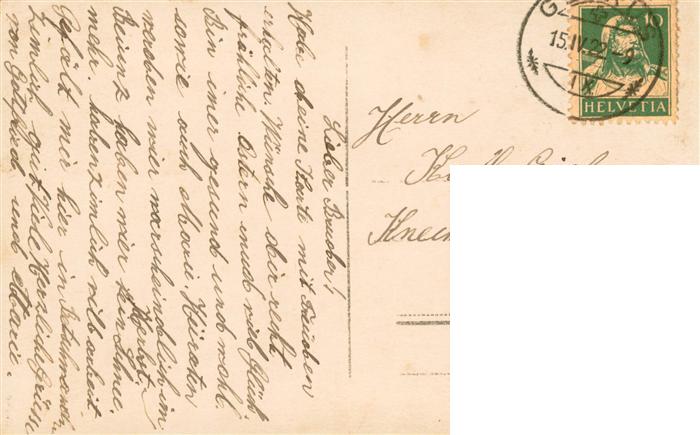 Lieber Bruder!
Habe deine Karte mit Freuden
erhalten. Wünsche dier recht
fröhliche Ostern und vil glück
Bin imer gesund und wohl
sowie auch Marie. Heiraten
werden wier warscheindlich im
Herbst.
Beienz haben wier kein Schnee
mehr. haben zimlich vill arbeit
Gefält mir hier in
Zimlich gut. Viele Herzliche Grüsse
von Gottfried und Marie.
10
HELVETIA
15.IV.22-9
Herrn